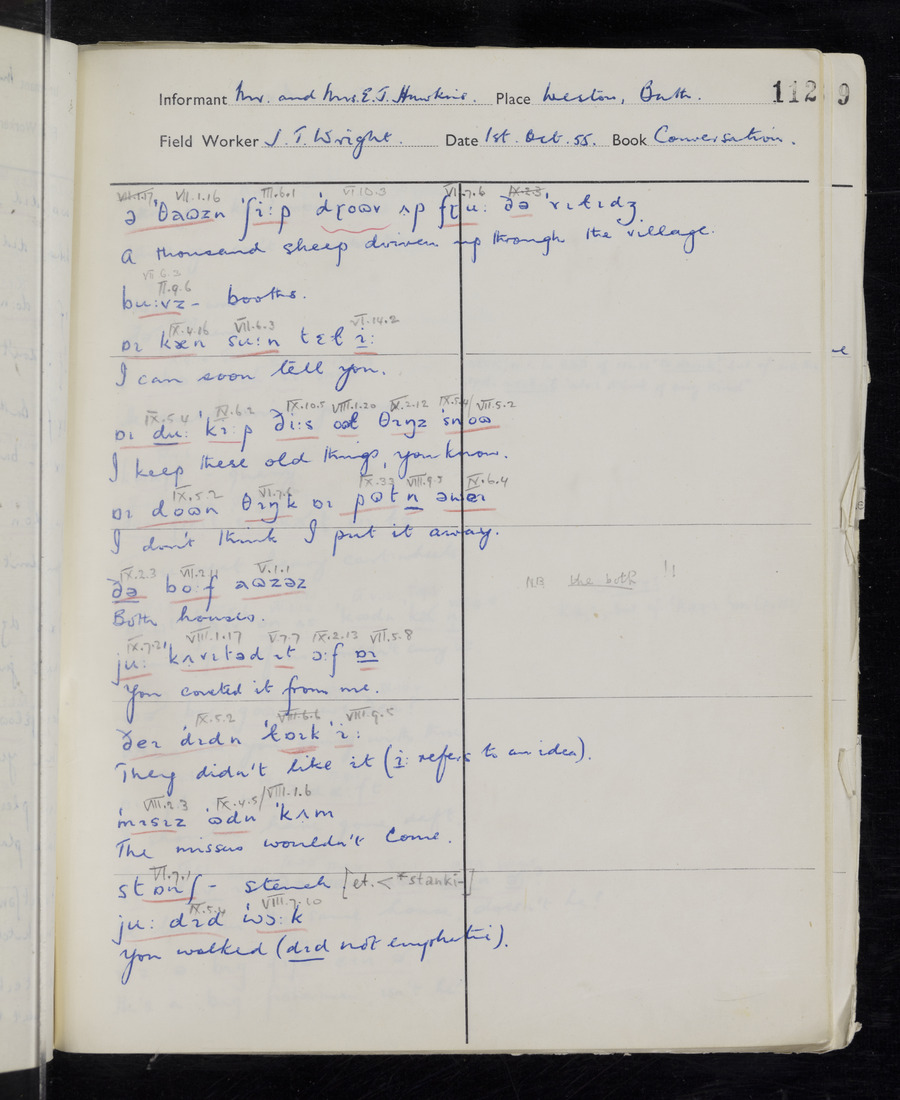 Informant Mr. and Mrs. E.J. Hawkins. Place Weston, Bath. 112 9
Field Worker J. T. Wright. Date 1st. Oct. 55. Book Conversation.
VII.1.16 III.6.1 VI.10.3 VI.7.6 IX.2.3
ə 'θaʊzn 'ʃi:p 'dɽoʊv ʌp fɽu: ðə 'vɪɫɪdʒ
A thousand sheep driven up through the village.
VII.6.3
II.9.6
bu:vz - booths.
IX.4.16 VII.6.3 VI.14.2
ɒɪ kæn su:n tɛɫ i:
I can soon tell you.
IX.5.4 IV.6.2 IX.10.5 VIII.1.20 IX.2.12 IX.5.4/VII.5.2
ɒɪ du: 'kɪ:p ði:s oʊɫ θɪŋz 'snoʊ
I keep these old things, you know.
IX.5.2 VI.7.6 IX.3.3 VIII.9.5 IV.6.4
ɒɪ doʊn θɪŋk ɒɪ pʊtn əwæɪ
I don't think I put it away.
IX.2.3 VII.2.11 V.1.1
ðə bo:f aʊzəz
Both houses.
NB the both !!
IX.7.21 VIII.1.17 V.7.7 IX.2.13 VII.5.8
ju: kʌvɪtəd ɪt ɔ:f ɒɪ
You coveted it from me.
IX.5.2 VIII.6.6 VIII.9.5
ðeɪ dɪdn 'ɫɒɪk 'i:
They didn't like it (i: refers to an idea).
VIII.2.3 IX.4.5/VIII.1.6
'mɪsɪz 'ʊdn 'kʌm
The missus wouldn't come.
VI.7.1
stɒnʃ - stench [et. < *stanki-]
IX.5.4 VIII.7.10
ju: dɪd 'wɔ:k
You walked (dɪd not emphatic).